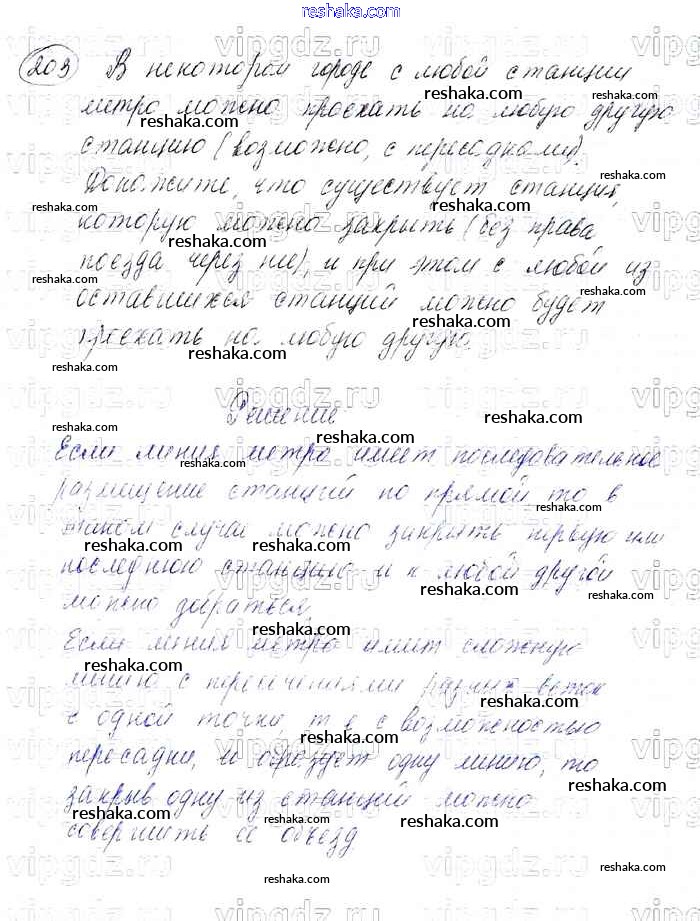 reshaka.com
203 В некотором городе с любой станции
метро можно проехать на любую другую
станцию (возможно, с пересадками).
Докажите, что существует станция,
которую можно закрыть (без права
поезда через нее), и при этом с любой из
оставшихся станций можно будет
проехать на любую другую.
Решение
Если линия метро имеет последовательное
размещение станций по прямой то в
таком случаи можно закрыть первую или
последнюю станцию и к любой другой
можно добраться
Если линия метро имеет сложную
линию с пересечениями разных веток
в одной точки, т е с возможностью
пересадки, и образует одну линию, то
закрыв одну из станций можно
совершить ее объезд